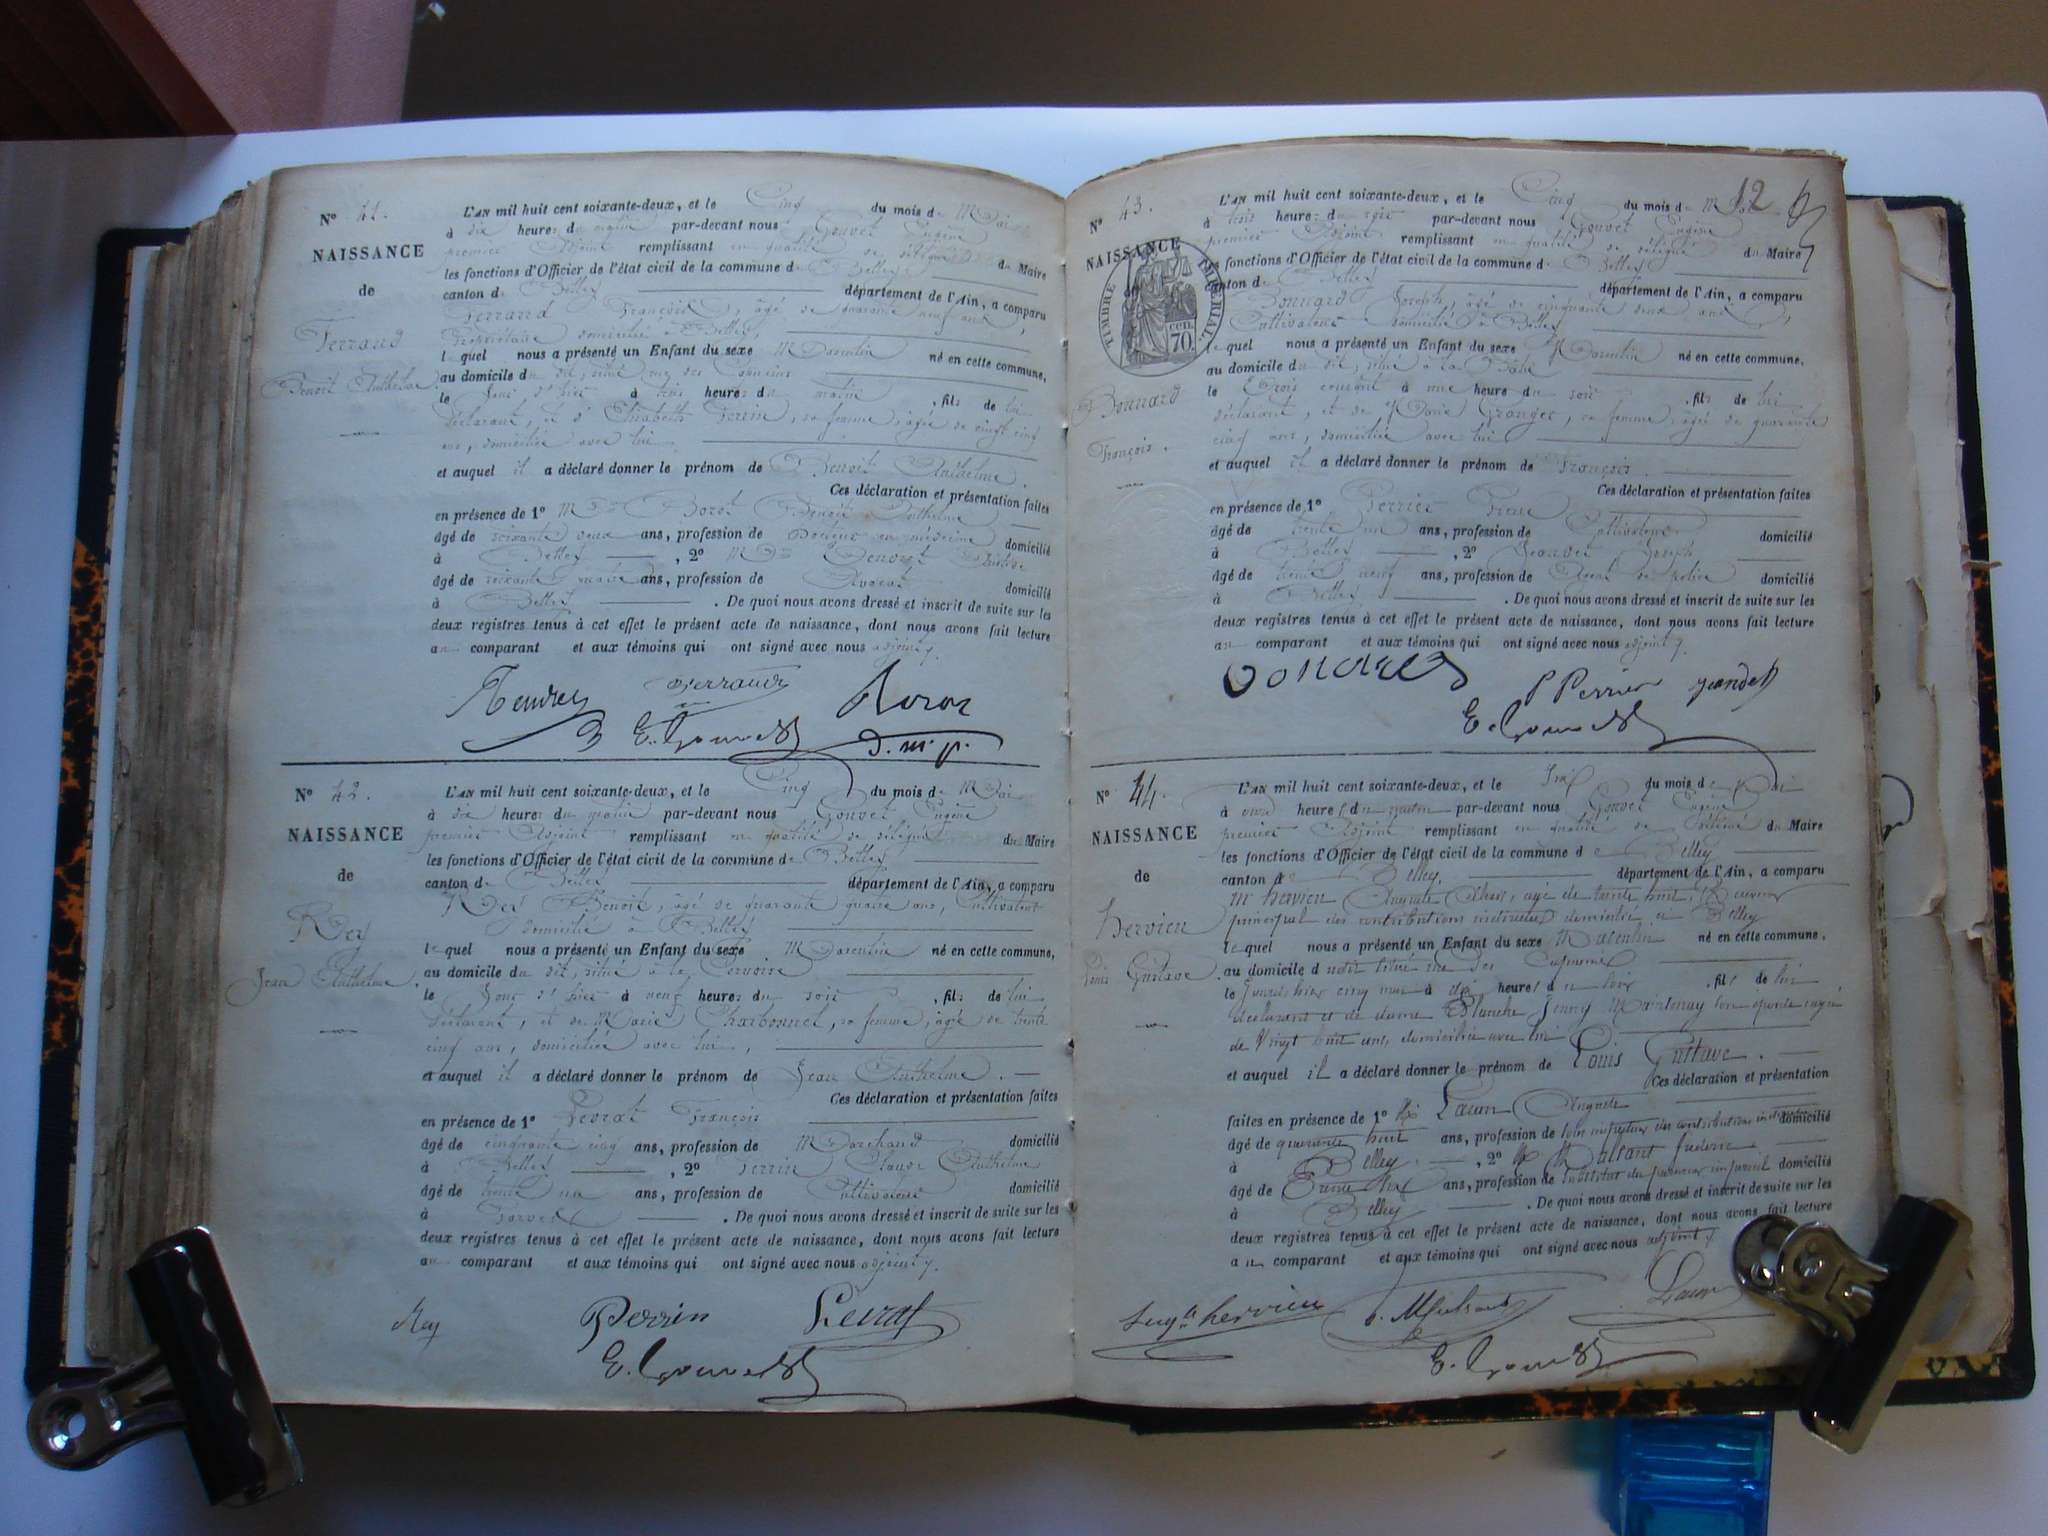 N° 41.
NAISSANCE
de
Ferrand
Benoit Anthelme.
L'AN mil huit cent soixante-deux, et le Cinq du mois de Mai
à dix heures du matin par-devant nous Gouvet Eugène
premier Adjoint remplissant en qualité de délégué du Maire
les fonctions d'Officier de l'état civil de la commune de Belley
canton de Belley département de l'Ain, a comparu
Ferrand François, âgé de quarante neuf ans,
Propriétaire domicilié à Belley,
lequel nous a présenté un Enfant du sexe Masculin né en cette commune,
au domicile du dit, situé rue des Capucins
le jour d'hier à trois heures du matin, fils de lui
déclarant, et d'Elisabeth Perrin, sa femme, âgée de vingt cinq
ans, domiciliée avec lui.
et auquel il a déclaré donner le prénom de Benoit Anthelme.
Ces déclaration et présentation faites
en présence de 1° Mr Boroz Benoit Anthelme
âgé de soixante deux ans, profession de Docteur en médecine domicilié
à Belley, 2° Mr
âgé de soixante quatre ans, profession de Avocat domicilié
à Belley. De quoi nous avons dressé et inscrit de suite sur les
deux registres tenus à cet effet le présent acte de naissance, dont nous avons fait lecture
au comparant et aux témoins qui ont signé avec nous adjoint.
Ferrand Boroz
E. Gouvet d. m. p.
N° 42.
NAISSANCE
de
Rey
Jean Anthelme.
L'AN mil huit cent soixante-deux, et le Cinq du mois de Mai
à dix heures du matin par-devant nous Gouvet Eugène
premier Adjoint remplissant en qualité de délégué du Maire
les fonctions d'Officier de l'état civil de la commune de Belley
canton de Belley département de l'Ain, a comparu
Rey Benoit, âgé de quarante quatre ans, Cultivateur
domicilié à Belley
lequel nous a présenté un Enfant du sexe Masculin né en cette commune,
au domicile du dit, situé à la
le jour d'hier à neuf heures du soir, fils de lui
déclarant, et de Marie Charbonnet, sa femme, âgée de trente
cinq ans, domiciliée avec lui,
et auquel il a déclaré donner le prénom de Jean Anthelme.
Ces déclaration et présentation faites
en présence de 1° Peyrat François
âgé de cinquante cinq ans, profession de Marchand domicilié
à Belley, 2° Perrin Claude Anthelme
âgé de trente un ans, profession de Cultivateur domicilié
à. De quoi nous avons dressé et inscrit de suite sur les
deux registres tenus à cet effet le présent acte de naissance, dont nous avons fait lecture
au comparant et aux témoins qui ont signé avec nous adjoint.
Rey Perrin Peirat
E. Gouvet
12
N° 43.
NAISSANCE
de
TIMBRE IMPERIAL
70 cen.
Bonnard
François.
L'AN mil huit cent soixante-deux, et le Cinq du mois de Mai
à trois heures du soir par-devant nous Gouvet Eugène
premier Adjoint remplissant en qualité de délégué du Maire
les fonctions d'Officier de l'état civil de la commune de Belley
canton de Belley département de l'Ain, a comparu
Bonnard Joseph, âgé de cinquante deux ans,
Cultivateur domicilié à Belley
lequel nous a présenté un Enfant du sexe Masculin né en cette commune,
au domicile du dit, situé à la
le Trois courant à une heure du soir, fils de lui
déclarant, et de Marie Granger, sa femme, âgée de quarante
cinq ans, domiciliée avec lui
et auquel il a déclaré donner le prénom de François
Ces déclaration et présentation faites
en présence de 1° Perrier Pierre
âgé de trente un ans, profession de Cultivateur domicilié
à Belley, 2° Jeandet Joseph
âgé de trente neuf ans, profession de Agent de police domicilié
à Belley. De quoi nous avons dressé et inscrit de suite sur les
deux registres tenus à cet effet le présent acte de naissance, dont nous avons fait lecture
au comparant et aux témoins qui ont signé avec nous adjoint.
P Perrier Jeandet
E. Gouvet
N° 44.
NAISSANCE
de
hervieu
Louis Gustave.
L'AN mil huit cent soixante-deux, et le Six du mois de Mai
à onze heures du matin par-devant nous Gouvet Eugène
premier Adjoint remplissant en qualité de délégué du Maire
les fonctions d'Officier de l'état civil de la commune de Belley
canton de Belley. département de l'Ain, a comparu
Mr hervieu Auguste, agé de trente huit, Receveur
principal des contributions indirectes domicilié à Belley
lequel nous a présenté un Enfant du sexe Masculin né en cette commune,
au domicile du dit situé rue des Capucins
le jour d'hier cinq mai à dix heures du soir, fils de lui
déclarant et de dame Blanche Jenny Maintenay son épouse agée
de Vingt huit ans, domiciliée avec lui
et auquel il a déclaré donner le prénom de Louis Gustave.
Ces déclaration et présentation
faites en présence de 1° Mr Laum Auguste
âgé de quarante huit ans, profession de sous inspecteur des contributions indirectes domicilié
à Belley, 2° Mr
âgé de Trente Six ans, profession de Substitut du procureur impérial domicilié
à Belley. De quoi nous avons dressé et inscrit de suite sur les
deux registres tenus à cet effet le présent acte de naissance, dont nous avons fait lecture
au comparant et aux témoins qui ont signé avec nous adjoint.
Augte hervieu Laum
E. Gouvet